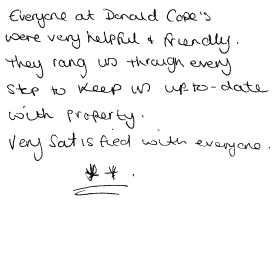 Everyone at Donald Cope's
were very helpful & friendly.
They rang us through every
step to keep us up-to-date
with property.
Very Satisfied with everyone.
**.